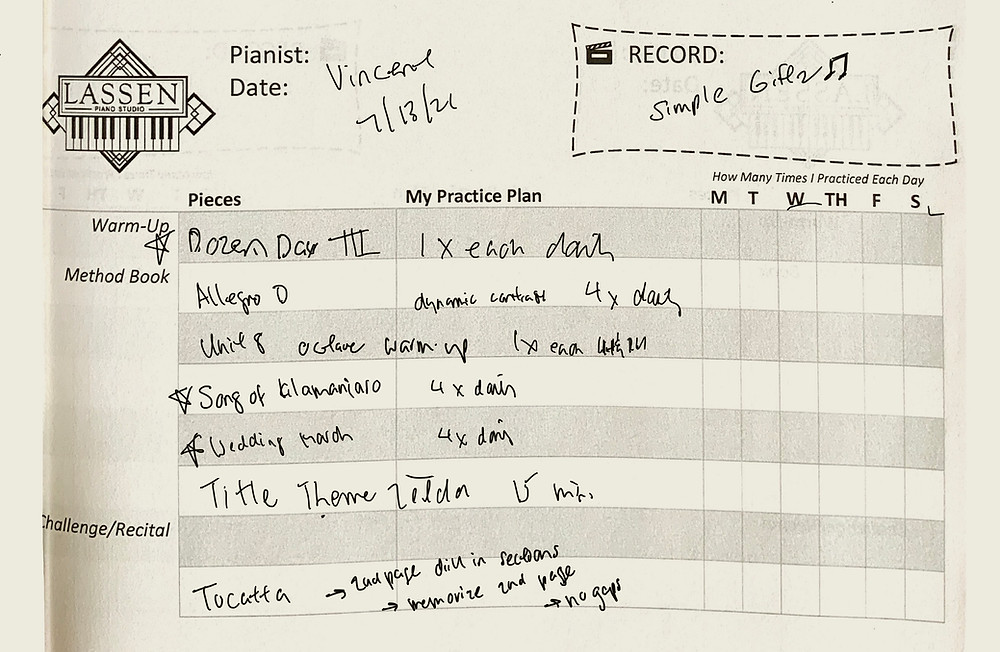 LASSEN
PIANO STUDIO
Pianist: Vincent
Date: 7/13/21
RECORD:
Simple Gifts
How Many Times I Practiced Each Day
Pieces My Practice Plan M T W TH F S
Warm-Up Dozen Day III 1x each daily
Method Book
Allegro dynamic contrast 4x daily
Unit 8 octave warm-up 1x each
Song of Kilamanjaro 4x daily
Wedding March 4x daily
Title Theme Zelda 15 min.
Challenge/Recital
Tocatta → 2nd page drill in sections
→ memorize 2nd page
→ no gaps